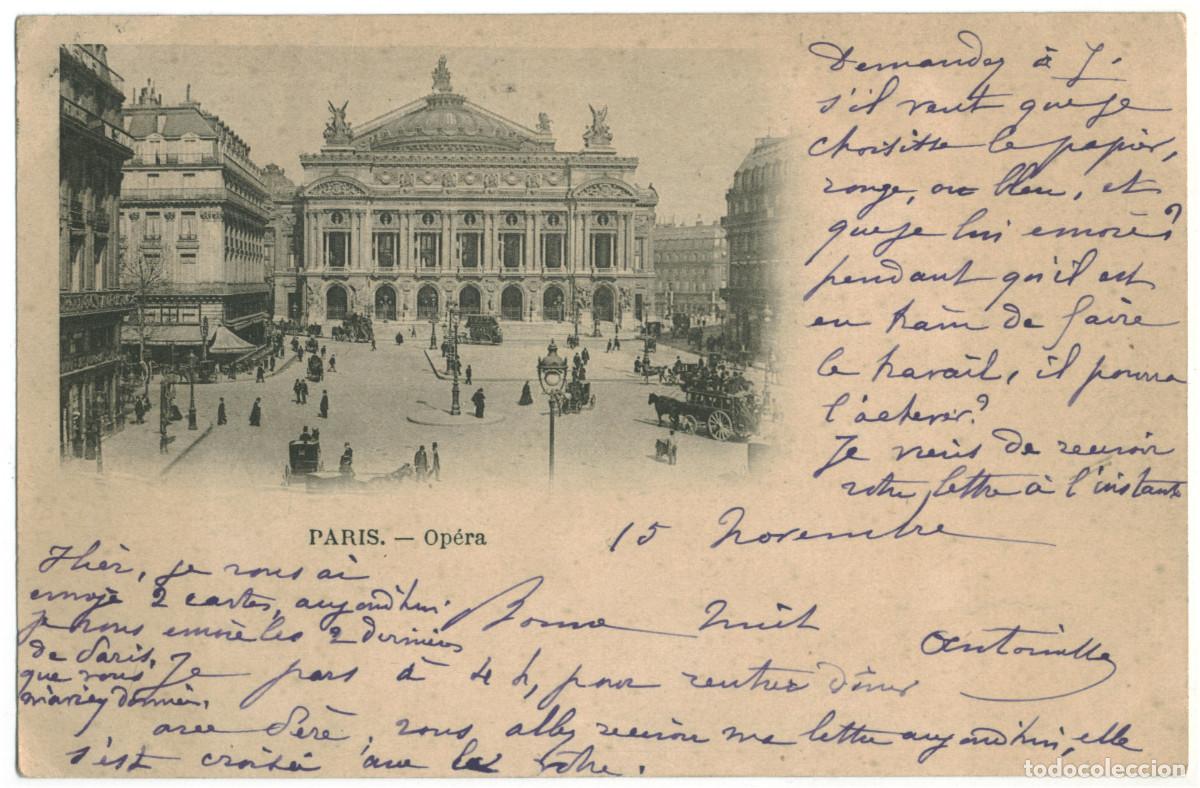 Demandez à J.
s'il veut que je
choisisse le papier,
rouge, ou bleu, et
que je lui envoie?
pendant qu'il est
en train de faire
le travail, il pourra
l'achever?
Je viens de recevoir
votre lettre à l'instant
PARIS. — Opéra
15 Novembre
Hier, je vous ai
envoyé 2 cartes, aujourd'hui
je vous envoie les 2 dernières
de Paris,
que vous
m'aviez données.
Bonne Nuit
Antoinette
Je pars à 4 h, pour rentrer dîner
avec Père, vous allez recevoir ma lettre aujourd'hui, elle
s'est croisée avec la vôtre.
todocoleccion